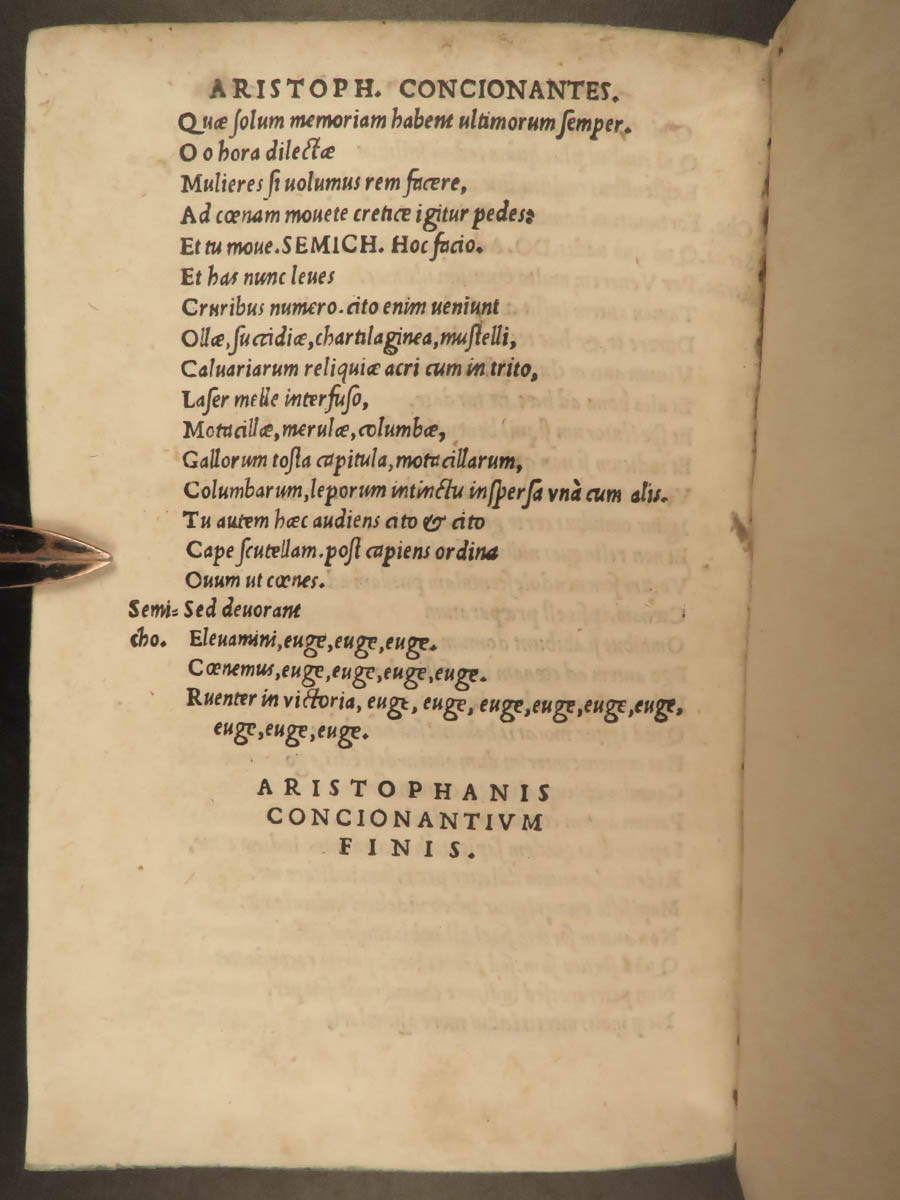 ARISTOPH. CONCIONANTES.
Quæ ſolum memoriam habent ultimorum ſemper.
O o hora dilectæ
Mulieres ſi uolumus rem facere,
Ad cœnam mouete creticæ igitur pedes:
Et tu moue. SEMICH. Hoc facio.
Et has nunc leues
Cruribus numero. cito enim ueniunt
Ollæ, ſuccidiæ, chartilaginea, muſtelli,
Caluariarum reliquiæ acri cum in trito,
Laſer melle interfuſo,
Motacillæ, merulæ, columbæ,
Gallorum toſta capitula, motacillarum,
Columbarum, leporum intinctu inſperſa vnà cum alis.
Tu autem hæc audiens cito & cito
Cape ſcutellam. poſt capiens ordina
Ouum ut cœnes.
Semi- Sed deuorant
cho. Eleuamini, euge, euge, euge.
Cœnemus, euge, euge, euge, euge.
Ruenter in victoria, euge, euge, euge, euge, euge, euge,
euge, euge, euge.
ARISTOPHANIS
CONCIONANTIVM
FINIS.